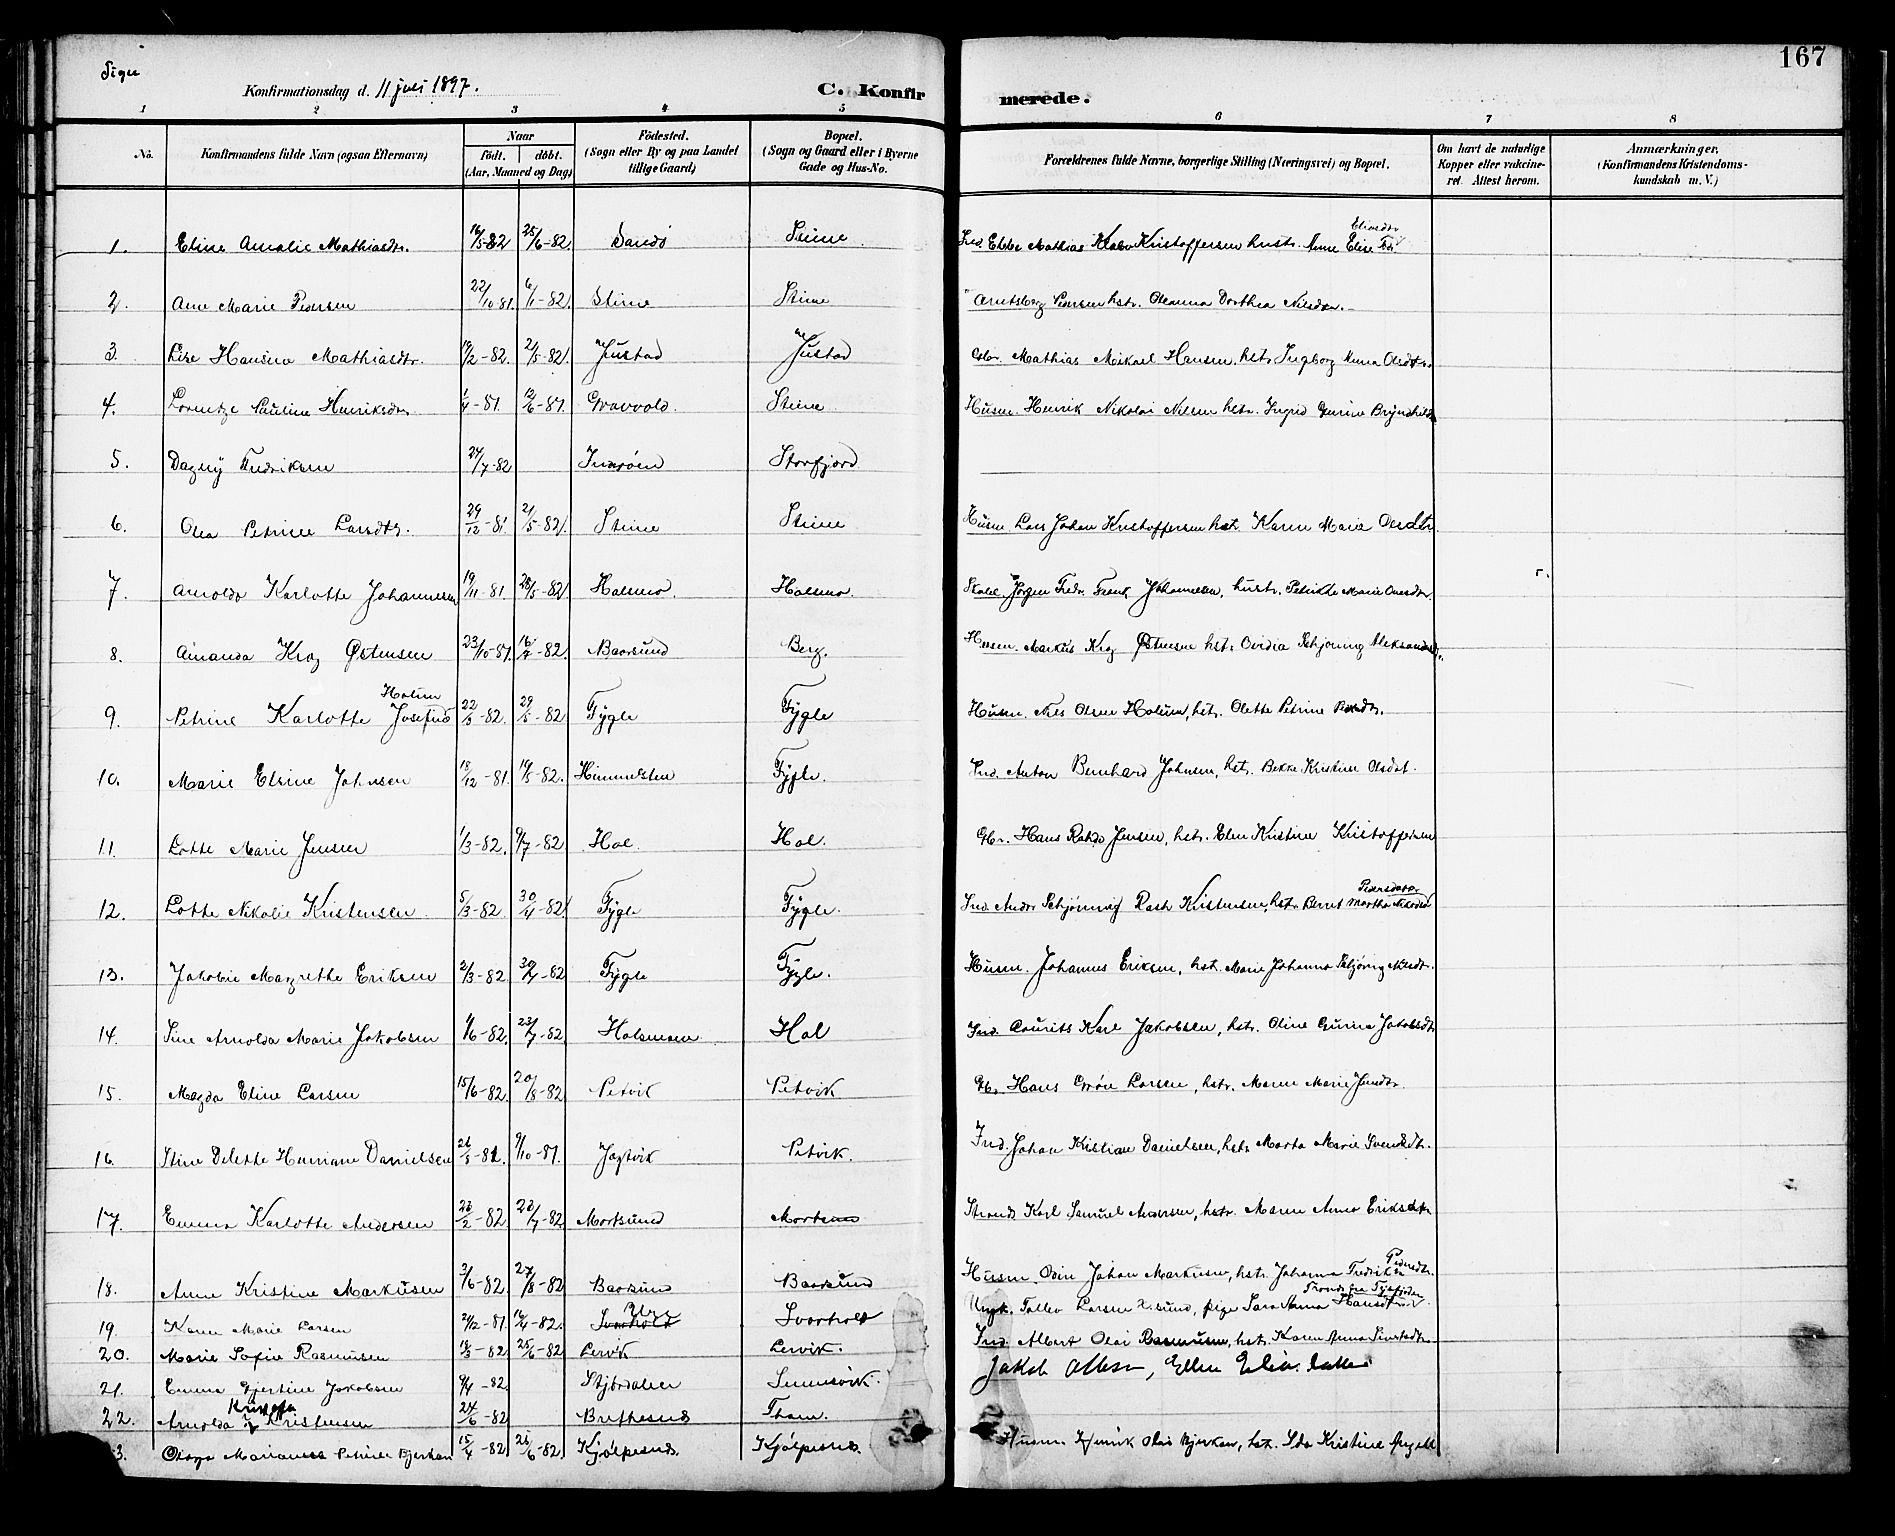 167
Piger
Konfirmationsdag d. 11 juli 1897.
C. Konfirmerede.
1 2 3 4 5 6 7 8
No. Konfirmandens fulde Navn (ogsaa Efternavn)
Naar födt. döbt. (Aar, Maaned og Dag)
Födested. (Sogn eller By og paa Landet tillige Gaard)
Bopæl. (Sogn og Gaard eller i Byerne Gade og Hus-No.
Forældrenes fulde Navne, borgerlige Stilling (Næringsvei) og Bopæl.
Om havt de naturlige Kopper eller vakcineret. Attest herom.
Anmærkninger, (Konfirmandens Kristendomskundskab m. V.)
1. Eline Amalie Mathiasdtr. 16/5-82 25/6-82 Sandö Stene Mathias Kristoffersen hustr. Anne Elise Eliasdtr
2. Ane Marie Pedersen 22/10 81. 6/1-82 Stene Stene Arntsberg Pedersen hstr. Oleanna Dorthea Nilsdtr.
3. Lise Hansine Mathiasdtr. 19/2-82. 21/5-82 Justad Justad Mathias Mikael Hansen, hstr. Ingborg Anna Olsdtr.
4. Lorentze Pauline Henriksdtr 1/4-81. 12/6-81. Gravvold. Stene Husm. Henrik Nikolai Nilsen hstr. Ingrid
5. Dagny Fredriksen 24/7-82 Inderöen Storfjord
6. Olea Petrine Larsdtr. 29/12-81 21/5-82 Stene Stene Husm. Lars Johan Kristoffersen hstr. Karen Marie Olsdtr.
7. Arnolda Karlotte Johannesen 19/11-81. 28/5-82 Holsmo. Holsmo. Jörgen Fredr. Johannesen, hustr. Petrikke Marie
8. Amanda Krog Østensen 23/10-81 16/7-82. Baarsund Berg. Husm. Markus Krog Østensen hstr. Ovidia Schjöning Aleksandersd.
9. Petrine Karlotte Josefine Holum 22/3-82. 29/5-82 Fygle Fygle Husm. Nils Olsen Holum, hstr. Olette Petrine
10. Marie Elsine Johnsen 18/12-81. 19/5-82. Himmelsten Fygle. Ind. Anton Bernhard Johnsen, hstr. Bekke Kristine Olsdat.
11. Lotte Marie Jensen 1/3-82. 9/7-82 Hol. Hol. Gbr. Hans Jensen, hstr. Elen Kristine Kristoffersen
12. Lotte Nikolie Kristensen. 5/3-82. 30/4-82 Fygle Fygle. Ind. Andr. Schjönning Rasch Kristensen, hstr. Beret Martha Pedersdatter
13. Jakobie Margrethe Eriksen 2/3-82 30/4-82 Fygle Fygle. Husm. Johannes Eriksen, hst. Marie Johanna Schjöning Nilsdtr.
14. Sine Arnolda Marie Jakobsen 9/6-82. 23/7-82 Holsmoen. Hol Ind. Laurits Karl Jakobsen, hstr. Oline Gurine Jakobsdtr
15. Magda Eline Larsen 15/6-82 20/8-82 Petvik Petvik Gbr. Hans Grön Larsen, hstr. Maren Marie Jensdtr.
16. Stine Delette Henriane Danielsen 26/8-81. 9/10-81. Jogtvik Petvik. Ind. Johan Kristian Danielsen, hstr. Marta Marie Svendsdtr.
17. Emma Karlotte Andersen 23/2-82 23/7-82 Mortsund Mortsund Strands. Karl Samuel Andersen, hstr. Maren Anna Eriksdtr
18. Anne Kristine Markusen 3/6-82. 27/8-82 Baarsund Baarsund Husm. Odin Johan Markusen, hstr. Johanna Fredrikke Pedersdtr.
19. Karen Marie Larsen 2/12-81. 16/4-82. Ure Svarholt Ungk. Tollev Larsen sund, pige Sara Anna Hansdtr Trones fra Tysfjorden
20. Marie Sofie Rasmussen 18/3-82 25/6-82 Lervik Lervik. Ind. Albert Olai Rasmusen, hst. Karen Anna Sivertsdtr.
21. Emma Gjertine Jakobsen 9/4-82. Stjördalen Sennesvik. Jakob Olsen, Ellen Elia datter
22. Arnolda Kristensen 24/6-82 Buksnes Tham.
23. Olaga Marianne Petrine Bjerkan 15/4-82 25/6-82 Kjölpesnes. Kjölpesnes. Husm. Henrik Olai Bjerkan, hst. Ida Kristine Angell